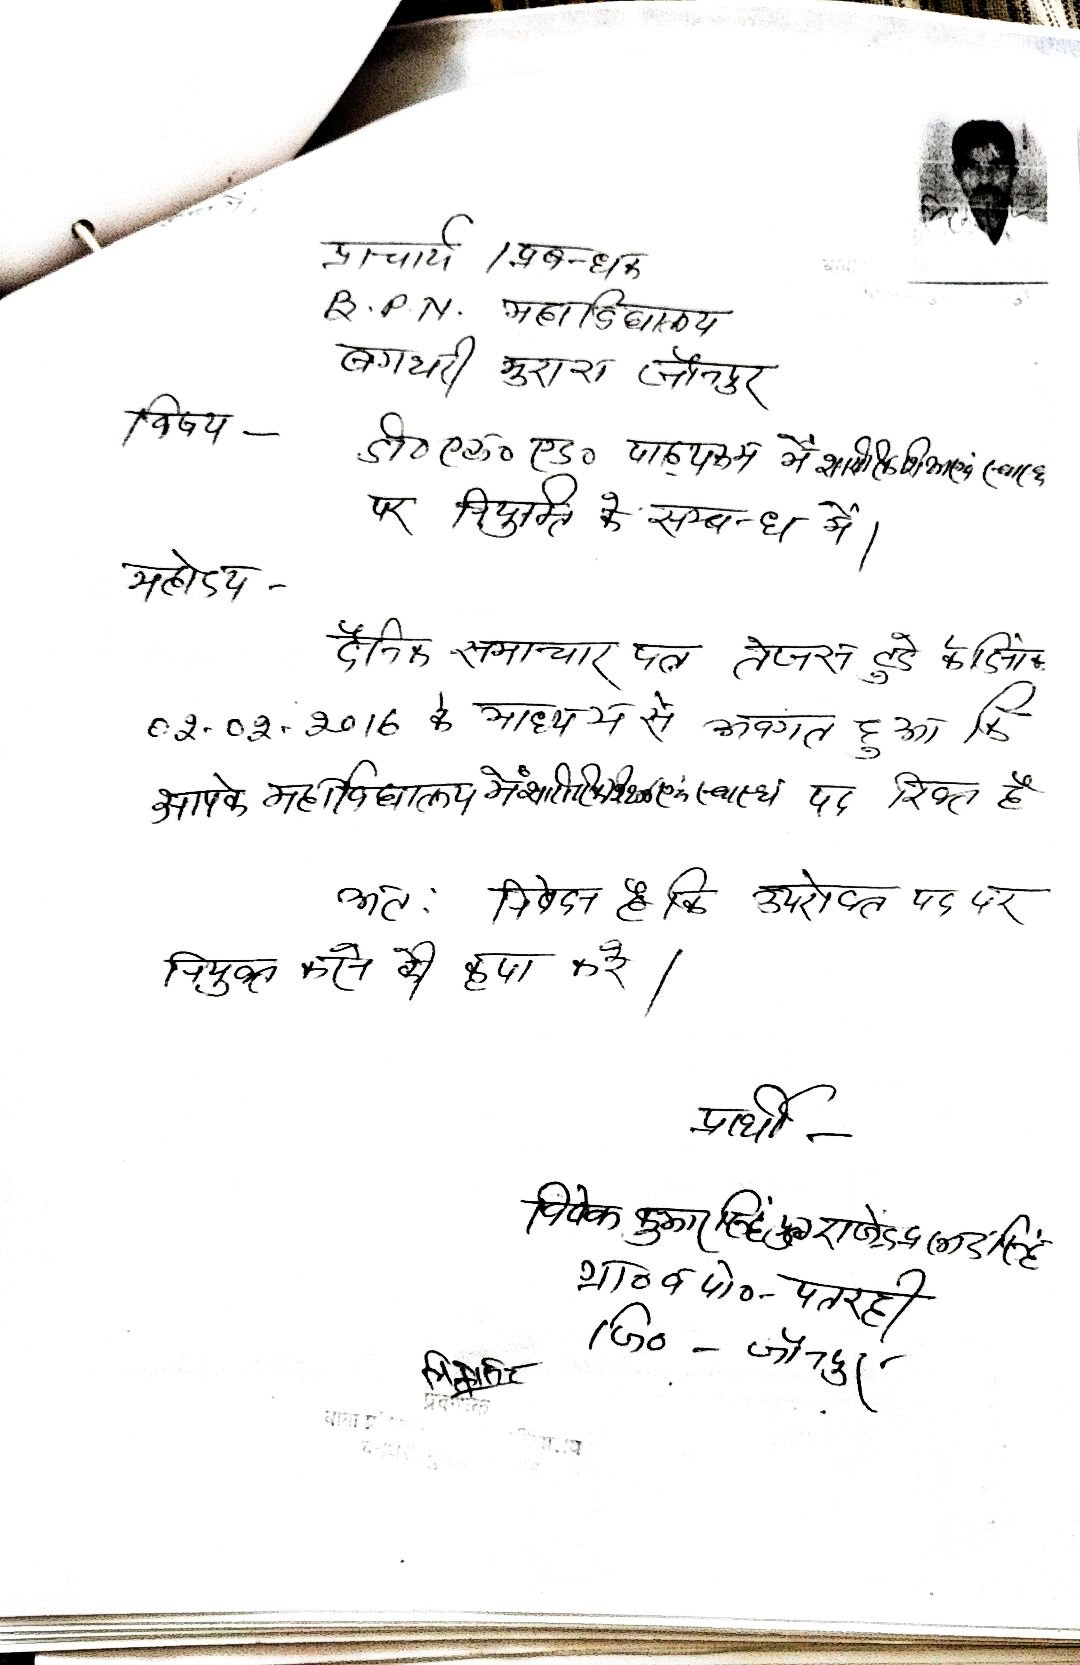 प्राचार्य / प्रबन्धक
B.P.N. महाविद्यालय
बगथरी मुरारा जौनपुर
विषय - डी० एल० एड० पाठ्यक्रम में शारीरिक शिक्षा एवं स्वास्थ
पर नियुक्ति के सम्बन्ध में।
महोदय -
दैनिक समाचार पत्र तेजस टुडे के दिनांक
02.02.2016 के माध्यम से अवगत हुआ कि
आपके महाविद्यालय में शारीरिक शिक्षा एवं स्वास्थ पद रिक्त है
अतः निवेदन है कि उपरोक्त पद पर
नियुक्त करने की कृपा करें।
प्रार्थी -
विवेक कुमार सिंह पुत्र राजेन्द्र सिंह
ग्रा० व पो० - पतरही
जि० - जौनपुर
प्रबन्धक